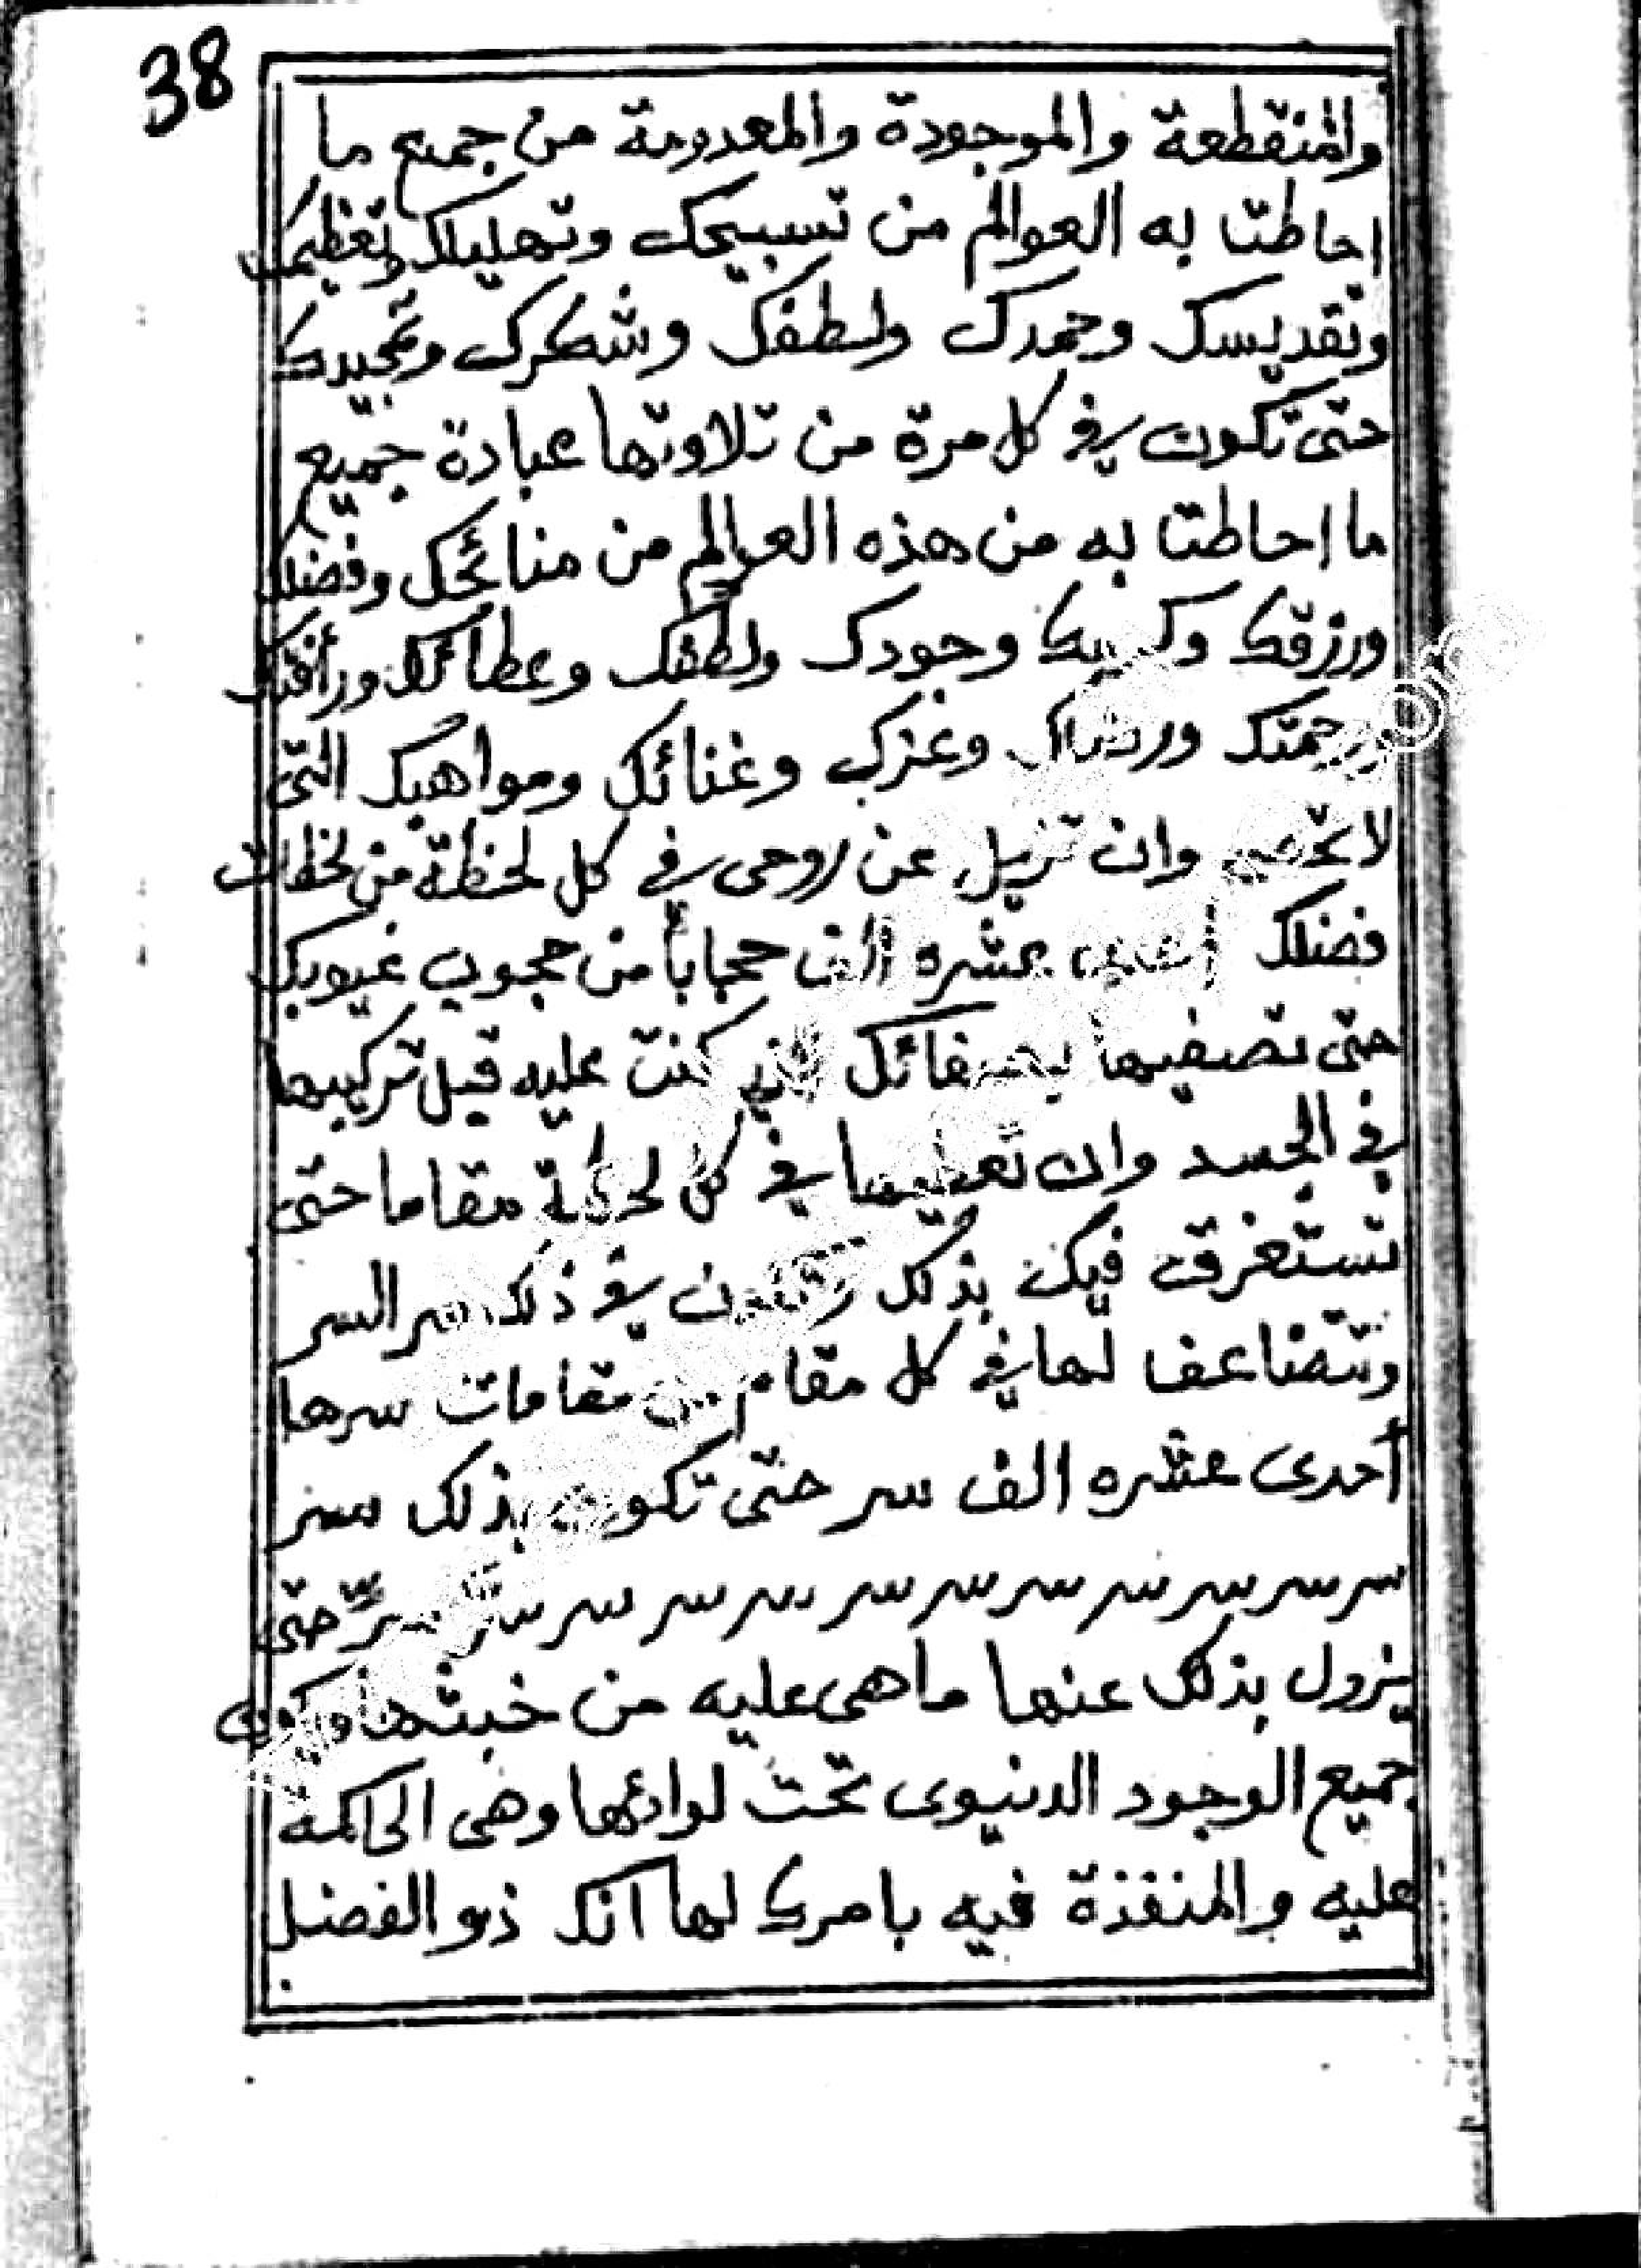 38
والمنقطعة والموجودة والمعدومة من جميع ما
احاطتا به العوالم من تسبيحك وتهليلك وتعظيمك
وتقديسك وحمدك ولطفك وشكرك وتمجيدك
حتى تكون في كل مرة من تلاوتها عبادة جميع
ما احاطتا به من هذه العوالم من منائحك وفضلك
ورزقك وجودك ولطفك وعطائك ورأفتك
ورحمتك وعزك وغنائك ومواهبك التى
لا وان تزيل عن روحى في كل لحظة من لحظات
فضلك عشره الف حجاباً من حجوب غيوبك
حتى تصفيها بصفائك كنت عليه قبل تركيبها
في الجسد وان تعطيها في كل لحظة مقاما حتى
تستغرق فيك بذلك في ذلك سر السر
وتتضاعف لها في كل مقام من مقامات سرها
أحدى عشره الف سر حتى تكون بذلك سر
سر سر سر سر سر سر سر سر سر سر سر سر سرّ حتى
يزول بذلك عنها ما هى عليه من خبثها ويكون
جميع الوجود الدنيوى تحت لوائها وهى الحاكمه
عليه والمنفذة فيه بامرك لها انك ذو الفضل